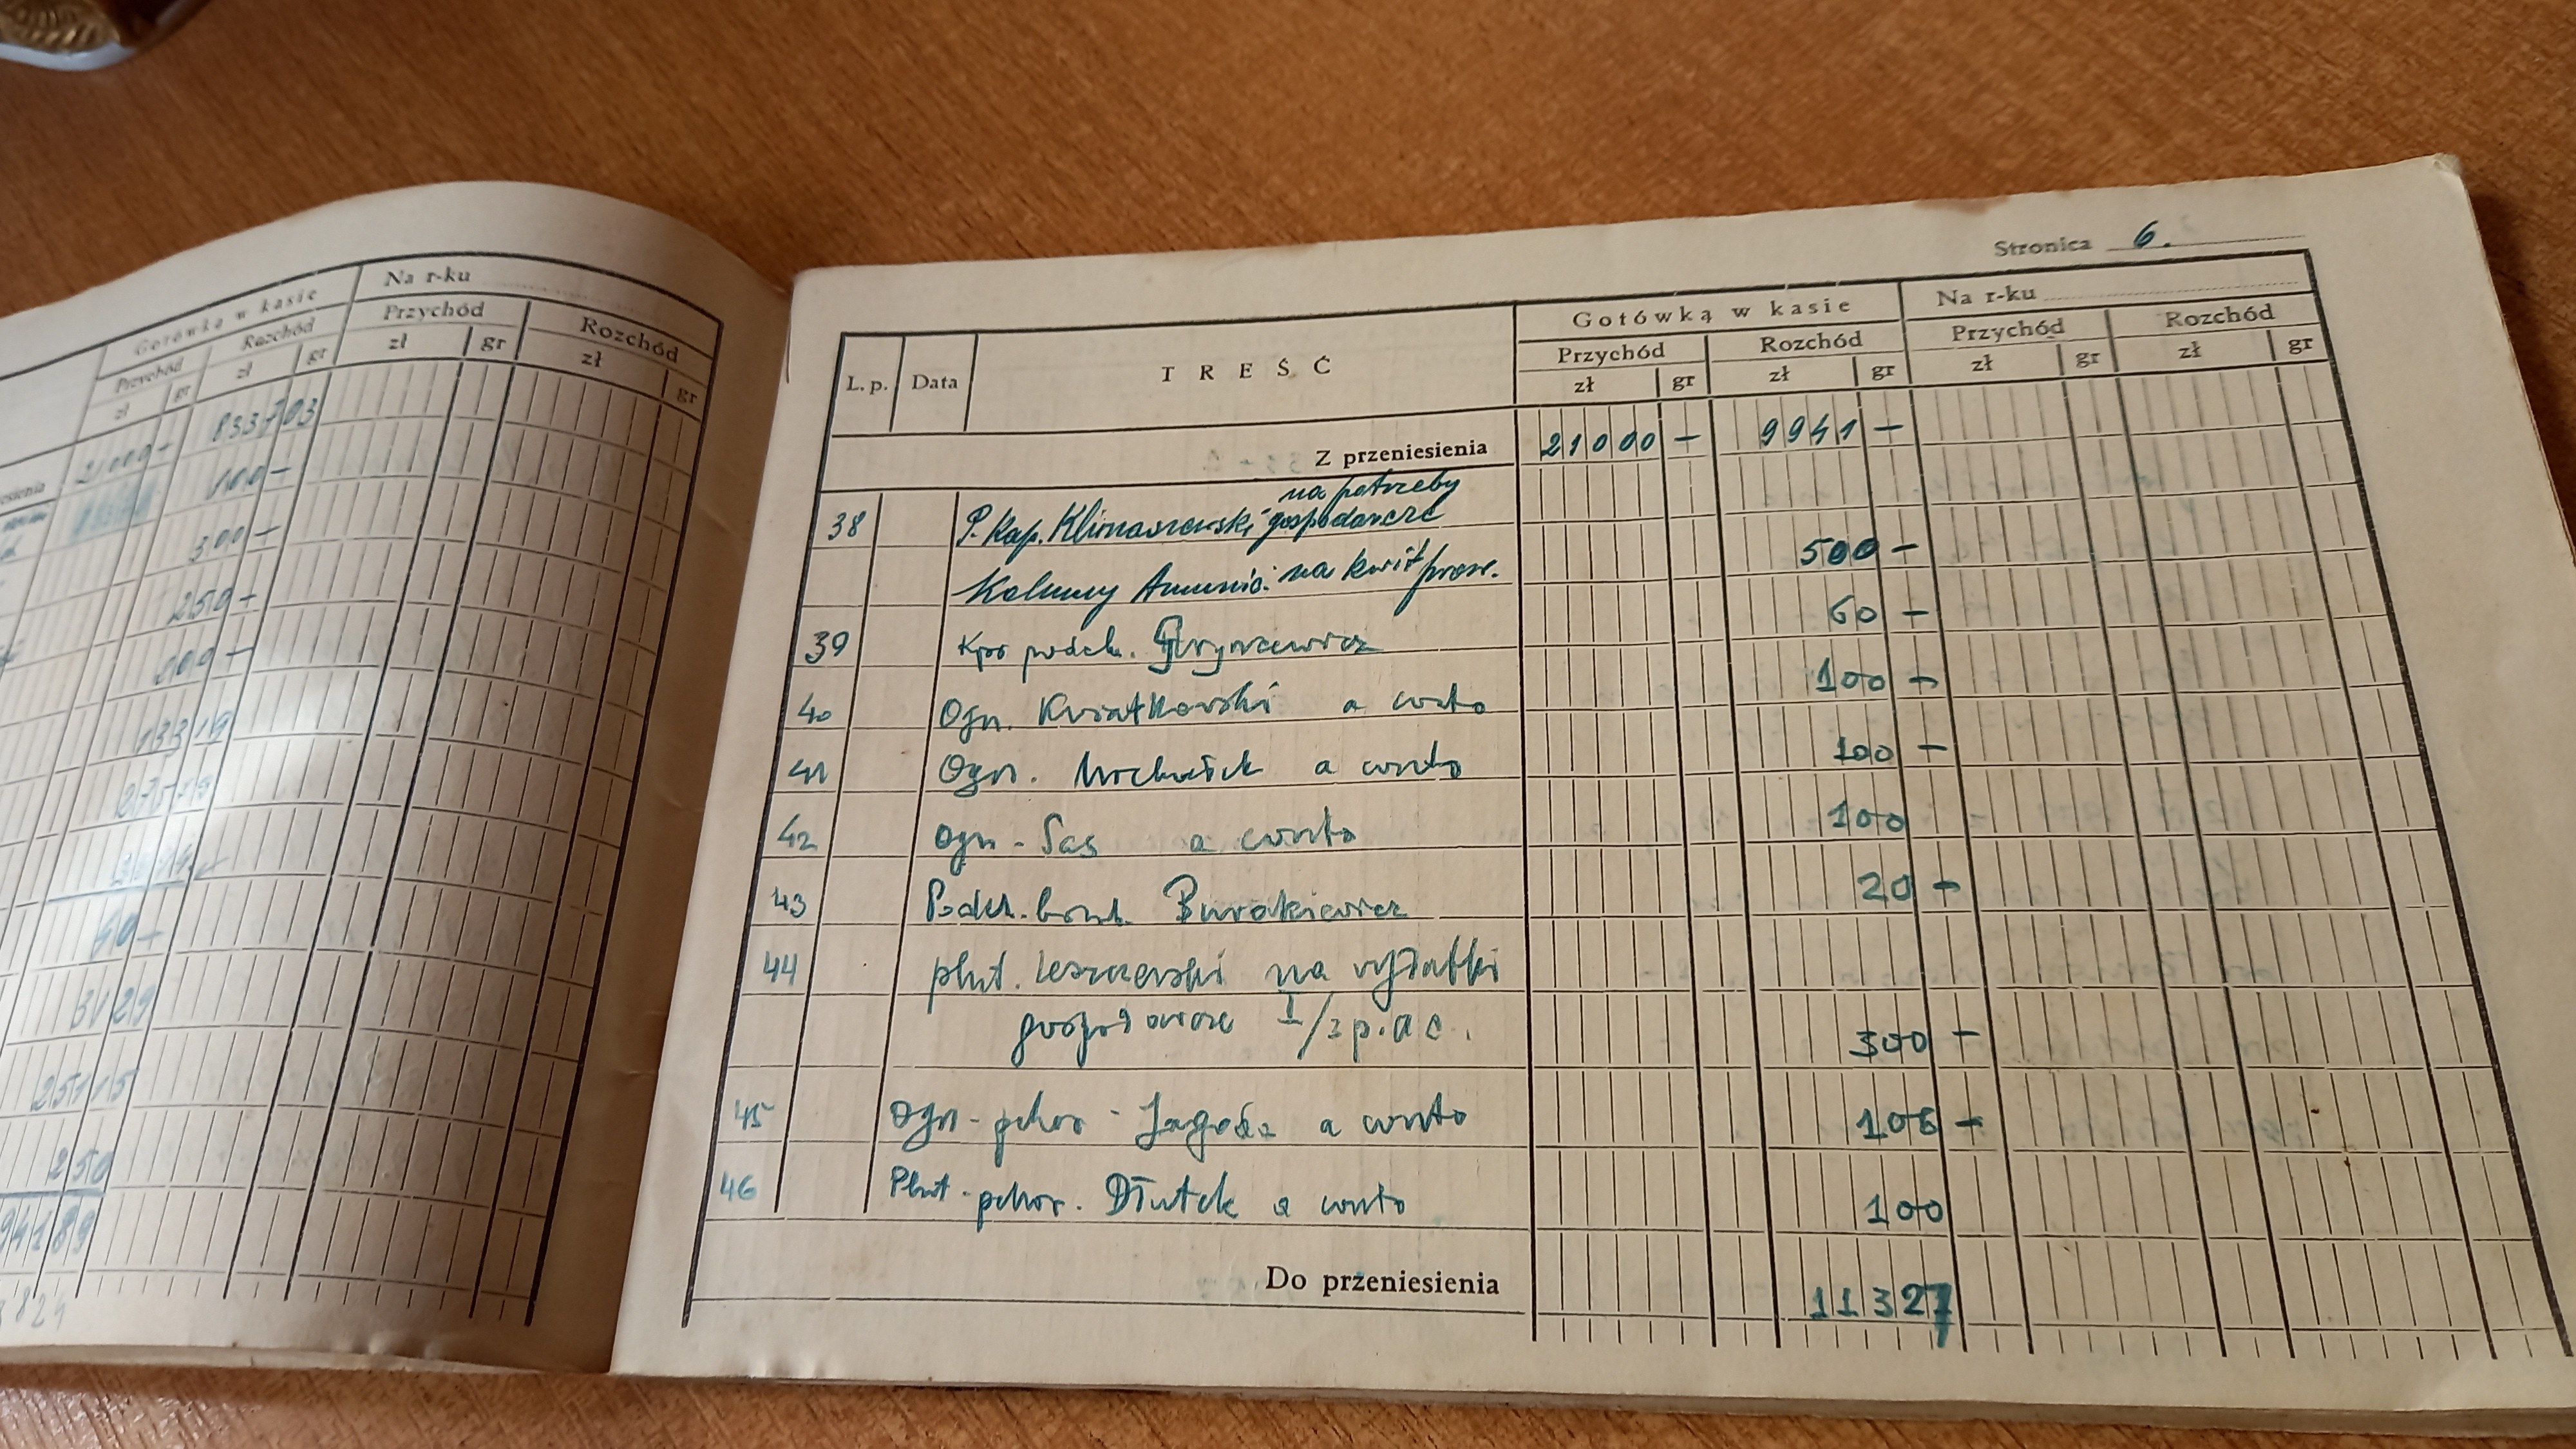 Gotówką w kasie
Na r-ku
Przychód
Rozchód
Przychód
Rozchód
zł
gr
zł
gr
zł
gr
zł
gr
21000 -
833703
100 -
300 -
250 -
13319
40 -
3129
25115
250
94189
Stronica 6.
L. p.
Data
TREŚĆ
Gotówką w kasie
Na r-ku
Przychód
Rozchód
Przychód
Rozchód
zł
gr
zł
gr
zł
gr
zł
gr
Z przeniesienia 21000 - 9941 -
na potrzeby
38 P. Kap. Klimaszewski gospodarcze
Kolumny Amunic. na kwit prow. 500 -
39 Kpr podch. Gryncewicz 60 -
40 Ogn. Kwiatkowski a conto 100 -
41 Ogn. a conto 100 -
42 Ogn - Sas a conto 100
43 Podch. bomb. Burakiewicz 20 -
44 plut. Leszczewski na wydatki
gospodarcze I/3 p.a c. 300 -
45 Ogn - pchor - Jagoda a conto 106 -
46 Plut - pchor. Dłutek a conto 100
Do przeniesienia 11327